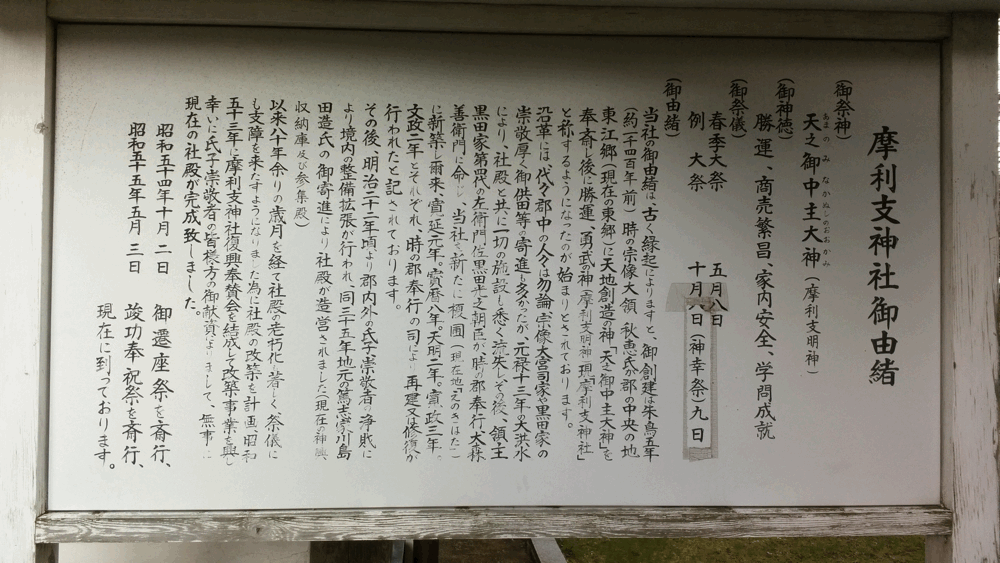 摩利支神社御由緒
(御祭神)
あまのみなかぬしのおおかみ
天之御中主大神(摩利支明神)
(御神徳)
勝運、商売繁昌、家内安全、学問成就
(御祭儀)
春季大祭 五月八日
例大祭 十月八日(神幸祭)九日
(御由緒)
当社の御由緒は、古く縁起によりますと、御創建は朱鳥五年
(約一千四百年前)時の宗像大領 秋恵氏が郡の中央の地
東江郷(現在の東郷)に天地創造の神「天之御中主大神」を
奉斎し後に勝運、勇武の神「摩利支明神」現「摩利支神社」
と称するようになったのが始まりとされております。
沿革には、代々郡中の人々は勿論宗像大宮司家や黒田家の
崇敬厚く御供田等の寄進も多かったが、元禄十三年の大洪水
により、社殿と共に一切の施設も悉く流失し、その後、領主
黒田家第四代の左衛門佐黒田光之朝臣が、時の郡奉行、大森
善衛門に命じ、当社を新たに榎圃(現在地「えのきはた」)
に新築し爾来、寛延元年。宝暦八年。天明二年。寛政三年。
文政二年とそれぞれ、時の郡奉行の司により再建又は修復が
行われたと記されております。
その後、明治二十二年頃より郡内外の氏子、崇敬者の浄財に
より境内の整備拡張が行われ、同三十五年地元の篤志家川島
田造氏の御寄進により社殿が造営されました(現在の神輿、
収納庫及び参集殿)
以来八十年余りの歳月を経て社殿の老朽化も著しく、祭儀に
も支障を来たすようになりました為に社殿の改築を計画、昭和
五十三年に摩利支神社復興奉賛会を結成して改築事業を興し
幸いに氏子、崇敬者の皆様方の御献資によりまして、無事に
現在の社殿が完成致しました。
昭和五十四年十月二日 御遷座祭を斎行、
昭和五十五年五月三日 竣功奉祝祭を斎行、
現在に到っております。